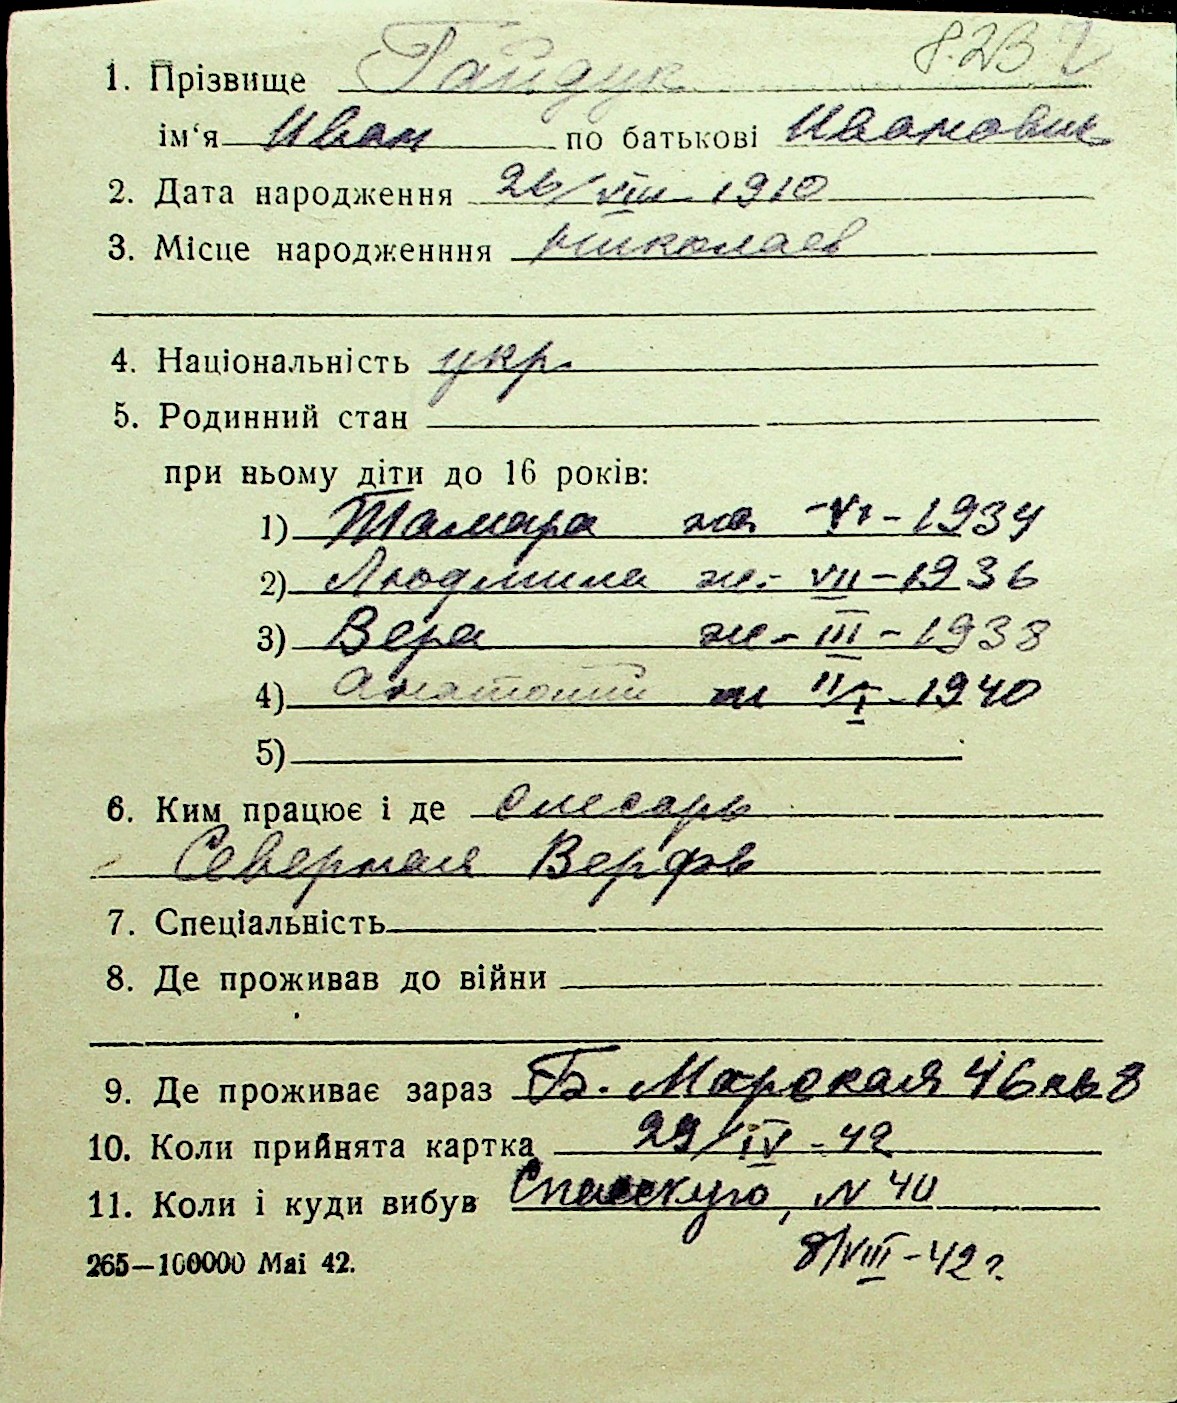 1. Прізвище Гайдук
ім‘я Иван по батькові Иванович
2. Дата народження 26/VIII 1910
3. Місце народженння Николаев
4. Національність укр.
5. Родинний стан
при ньому діти до 16 років:
1) Тамара ж. VI-1934
2) Людмила ж. - VII-1936
3) Вера ж. - III - 1938
4) Анатолий м II/I-1940
5)
6. Ким працює і де Слесарь
Северная Верфь
7. Спеціальність
8. Де проживав до війни
9. Де проживає зараз Б. Морская 46 кв 8
10. Коли прийнята картка 29/IV-42
11. Коли і куди вибув Спасскую, N 40
265—100000 Mai 42. 8/VIII-42 г.